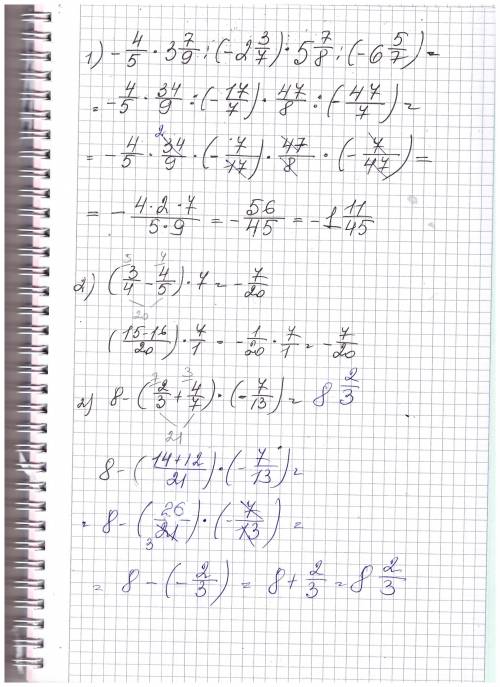 1) - 4/5 · 3 7/9 : (-2 3/7) · 5 7/8 : (-6 5/7) =
= - 4/5 · 34/9 : (- 17/7) · 47/8 : (- 47/7) =
= - 4/5 · 34/9 · (- 7/17) · 47/8 · (- 7/47) =
= - 4·2·7/5·9 = - 56/45 = -1 11/45
2) (3/4 - 4/5) · 7 = - 7/20
20
(15-16/20) · 7/1 = - 1/20 · 7/1 = - 7/20
2) 8 - (2/3 + 4/7) · (- 7/13) = 8 2/3
21
8 - (14+12/21) · (- 7/13) =
= 8 - (26/21) · (- 7/13) =
= 8 - (- 2/3) = 8 + 2/3 = 8 2/3